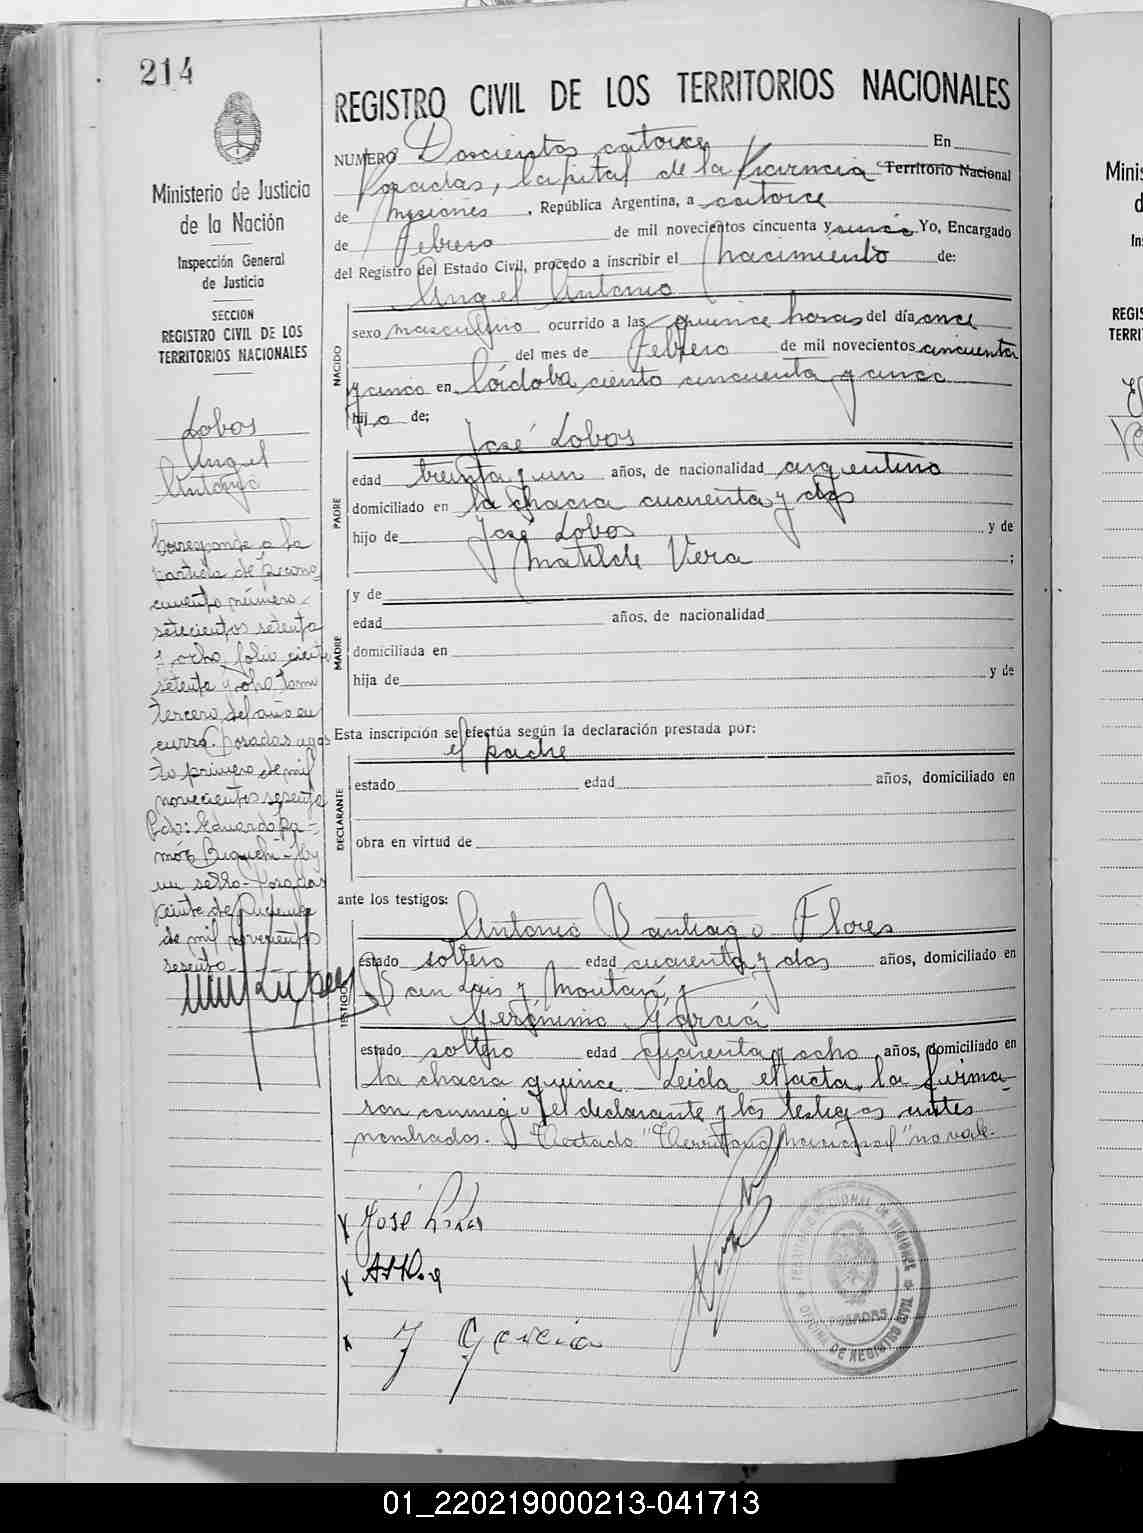 214
Ministerio de Justicia
de la Nación
Inspección General
de Justicia
SECCION
REGISTRO CIVIL DE LOS
TERRITORIOS NACIONALES
Lobos
Angel
Antonio
Corresponde a la
partida de recono
cimiento número
setecientos setenta
y ocho folio ciento
setenta y ocho tomo
tercero del año en
curso. Posadas agos
to primero de mil
novecientos sesenta
Fdo: Eduardo Ra-
món
un sello - Posadas
veinte de
de mil novecientos
sesenta -
REGISTRO CIVIL DE LOS TERRITORIOS NACIONALES
NUMERO Doscientos catorce En
Posadas, Capital de la Provincia Territorio Nacional
de Misiones, República Argentina, a catorce
de Febrero de mil novecientos cincuenta y cinco Yo, Encargado
del Registro del Estado Civil, procedo a inscribir el nacimiento de:
Angel Antonio
NACIDO
sexo masculino ocurrido a las quince horas del día once
del mes de Febrero de mil novecientos cincuenta
y cinco en Córdoba ciento cincuenta y cinco
hijo de;
José Lobos
PADRE
edad treinta y un años, de nacionalidad argentino
domiciliado en la chacra cuarenta y dos
hijo de José Lobos y de
Matilde Vera ;
MADRE
y de
edad años, de nacionalidad
domiciliada en
hija de y de
Esta inscripción se efectúa según la declaración prestada por:
el padre
DECLARANTE
estado edad años, domiciliado en
obra en virtud de
ante los testigos:
Antonio Santiago Flores
TESTIGOS
estado soltero edad cuarenta y dos años, domiciliado en
San Luis y
Gerónimo García
estado soltero edad cuarenta y ocho años, domiciliado en
la chacra quince. Leída el acta, la firma
ron conmigo el declarante y los testigos antes
nombrados. Testado "Territorio Nacional" no vale.
José Lobos
J Garcia
OFICINA DE REGISTRO CIVIL
POSADAS
01_220219000213-041713